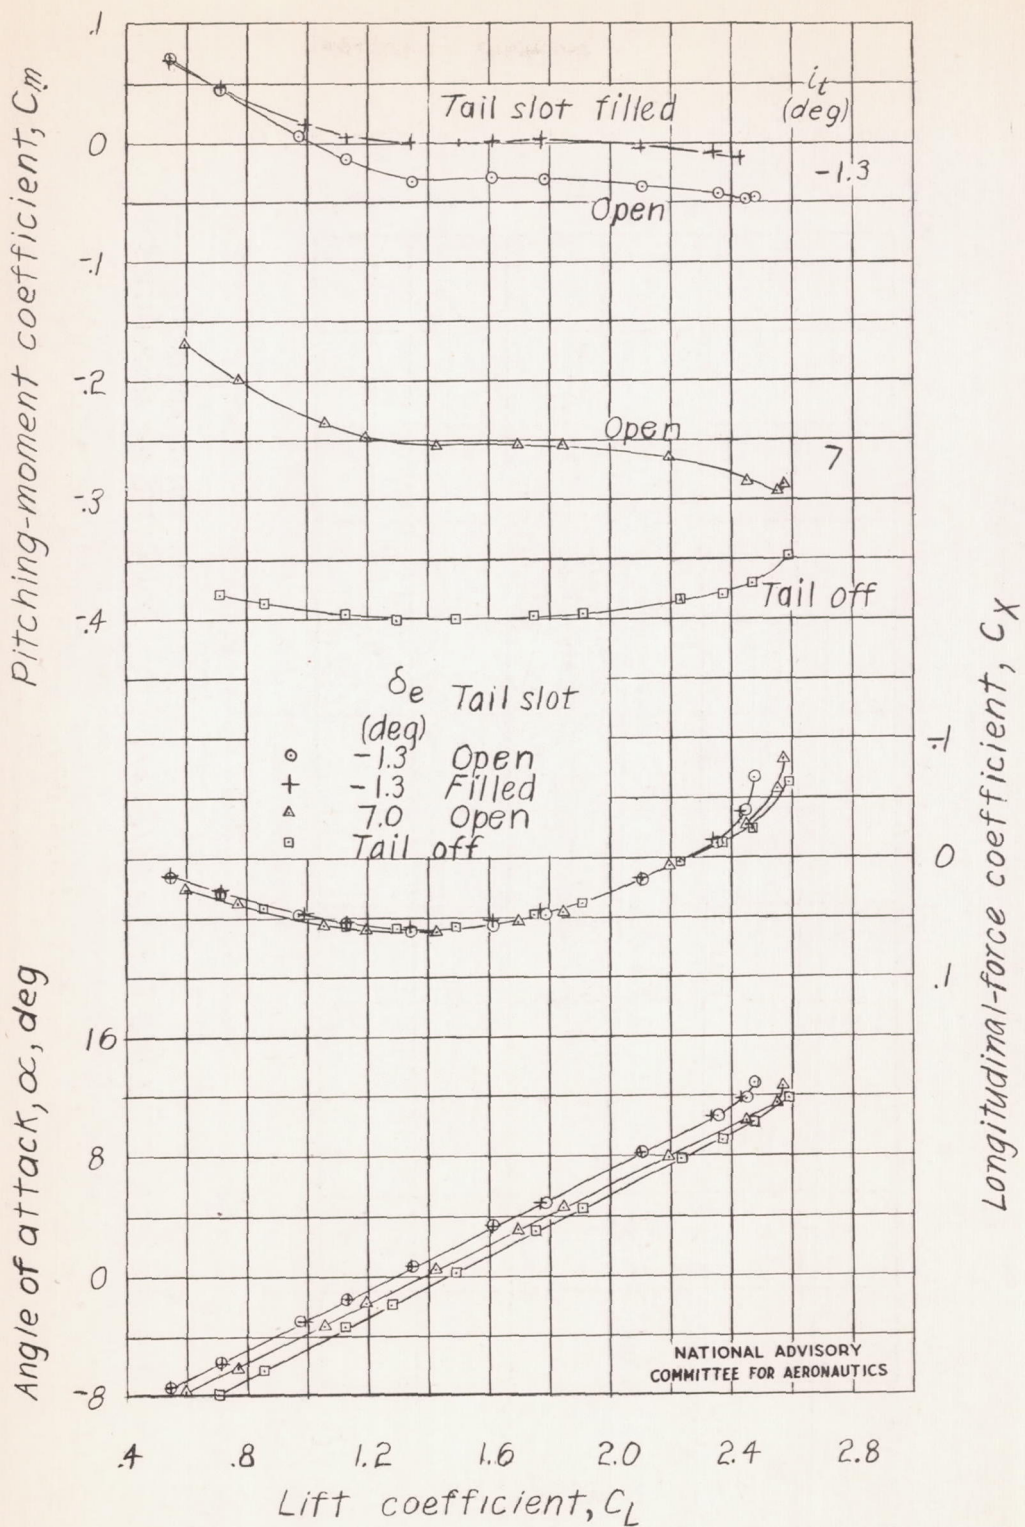 .1
0
-.1
-.2
-.3
-.4
Pitching-moment coefficient, Cm
Tail slot filled
it
(deg)
-1.3
Open
Open
7
Tail off
δe Tail slot
(deg)
-1.3 Open
-1.3 Filled
7.0 Open
Tail off
-.1
0
.1
Longitudinal-force coefficient, CX
16
8
0
-8
Angle of attack, α, deg
NATIONAL ADVISORY
COMMITTEE FOR AERONAUTICS
.4 .8 1.2 1.6 2.0 2.4 2.8
Lift coefficient, CL